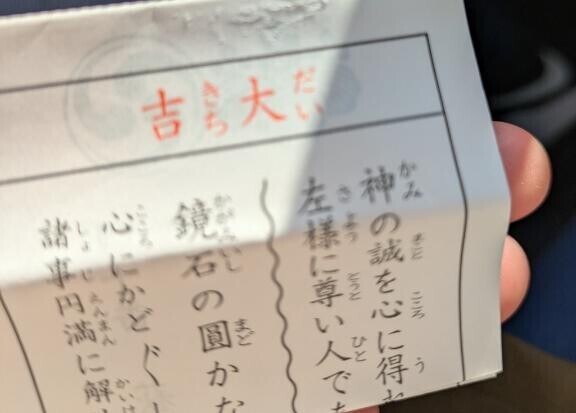 大吉
だいきち
神の誠を心に得
かみ まこと こころ う
左様に尊い人で
さよう とうと ひと
鏡石の圓かな
かがみいし まど
心にかどぐ
こころ
諸事円満に解
しょじえんまん かい